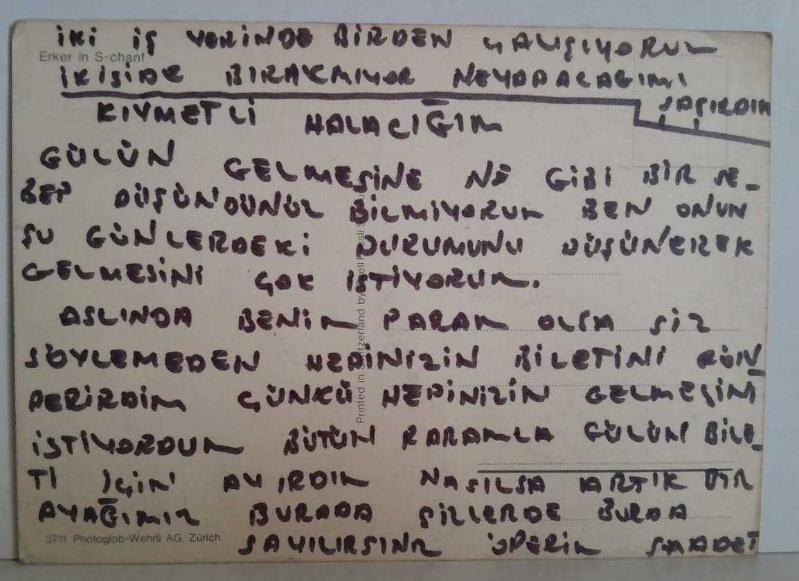 İKİ İŞ YERİNDE BİRDEN ÇALIŞIYORUM
Erker in S-chanf
İKİSİDE BIRAKMIYOR NEYAPACAĞIMI
ŞAŞIRDIM
KIYMETLİ HALACIĞIM
GÜLÜN GELMESİNE NE GİBİ BİR SE-
BEP DÜŞÜNDÜNÜZ BİLMİYORUM BEN ONUN
ŞU GÜNLERDEKİ DURUMUNU DÜŞÜNEREK
GELMESİNİ ÇOK İSTİYORUM.
ASLINDA BENİM PARAM OLSA SİZ
SÖYLEMEDEN HEPİNİZİN BİLETİNİ GÖN-
DERİRDİM ÇÜNKÜ HEPİNİZİN GELMESİNİ
İSTİYORDUM BÜTÜN PARAMLA GÜLÜN BİLE-
Tİ İÇİN AYIRDIM NASILSA ARTIK BİR
AYAĞIMIZ BURADA SİZLERDE BURDA
SAYILIRSINIZ ÖPERİM SAADET
Printed in Switzerland by
5711 Photoglob-Wehrli AG, Zürich